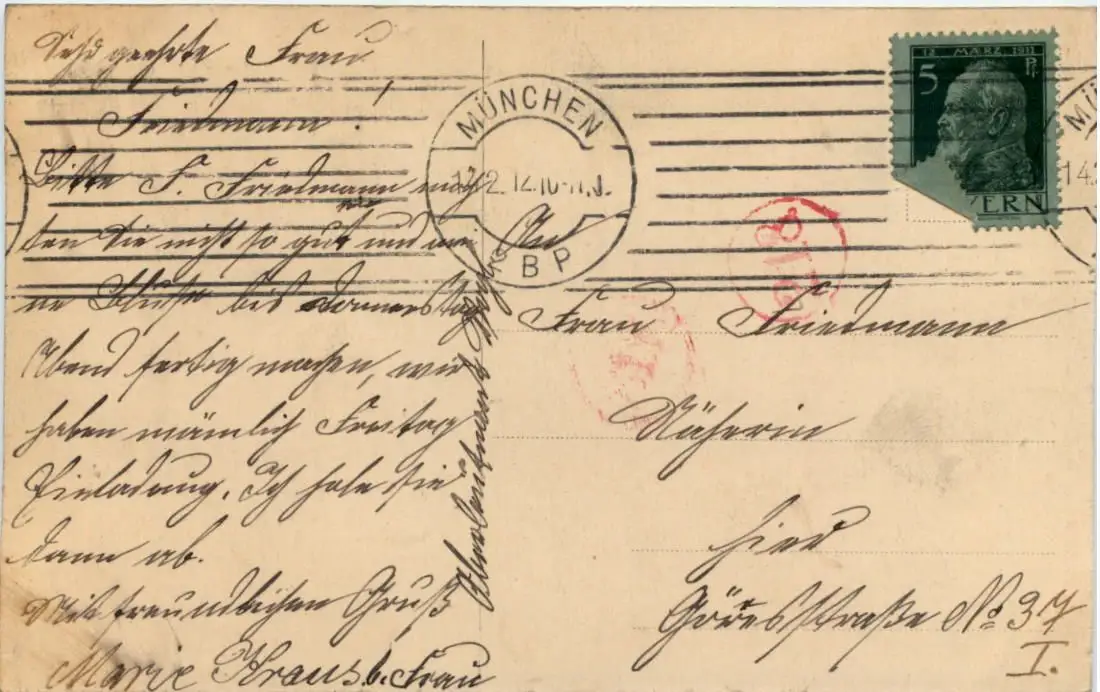 Sehr geehrte Frau
Friedmann!
Bitte F. Friedmann möch
ten Sie nicht so gut sein und mei
ne Bluse bis Donnerstag
Abend fertig machen, wir
haben nämlich Freitag
Einladung. Ich hole sie
dann ab.
Mit freundlichen Gruß
Marie Kraus b. Frau
Oberleutnant
MÜNCHEN
12.2.12.10-11.
B P
12. MÄRZ 1911
5 Pf
ERN
MÜ
14.
An
Frau Friedmann
Näherin
hier
Görresstraße No 37
I.